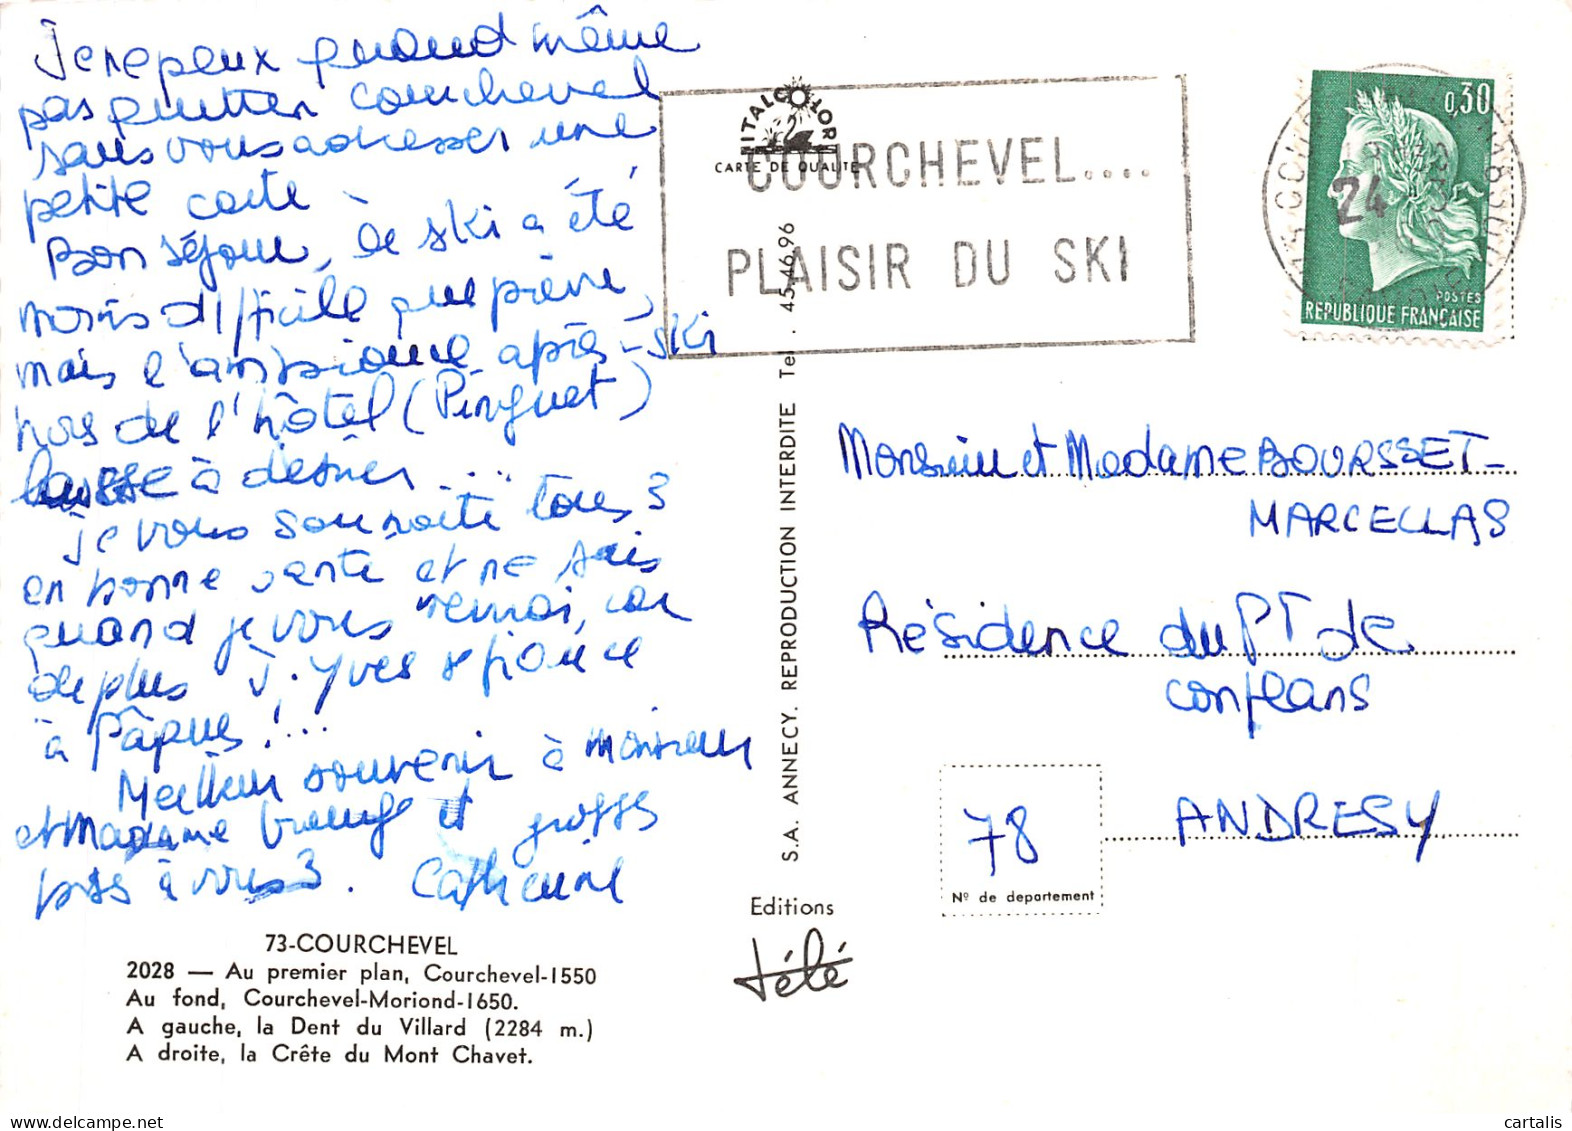 Je ne peux quand même
pas quitter Courchevel
sans vous adresser une
petite carte
Bon séjour, le ski a été
moins difficile que prévu,
mais l'ambiance après-ski
hors de l'hôtel (Pinguet)
laisse à désirer...
Je vous souhaite tous 3
en bonne santé et ne sais
quand je vous reverrai, car
de plus J. Yves se fiance
à Pâques!...
Meilleur souvenir à Monsieur
et Madame et grosses
bises à vous 3. Catherine
73-COURCHEVEL
2028 — Au premier plan, Courchevel-1550
Au fond, Courchevel-Moriond-1650.
A gauche, la Dent du Villard (2284 m.)
A droite, la Crête du Mont Chavet.
NITALCOLOR
CARTE DE QUALITE
COURCHEVEL....
PLAISIR DU SKI
S.A. ANNECY. REPRODUCTION INTERDITE Tel. 45.46.96
Editions
télé
0,30
24
POSTES
REPUBLIQUE FRANÇAISE
Monsieur et Madame BOURSSET-
MARCELLAS
Résidence du PT de
Conflans
78
ANDRESY
Nº de departement
cartalis